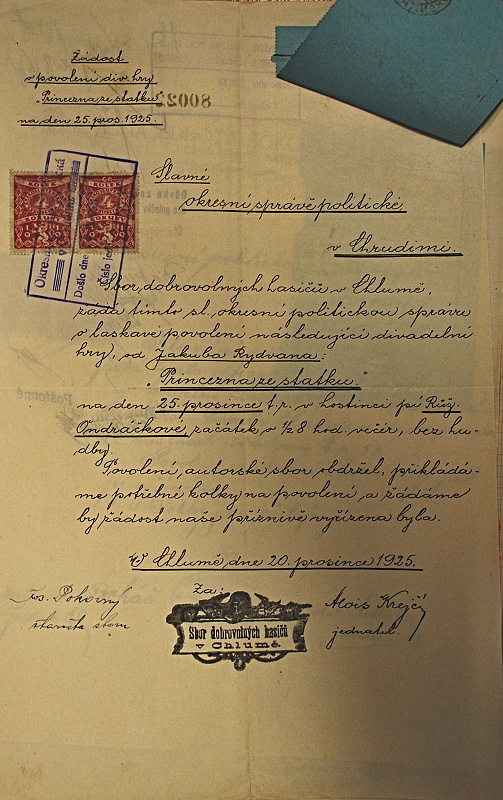 Žádost
o povolení div. hry
„Princezna ze statku“
na den 25. pros. 1925.
8002
Slavné
okresní správě politické
v Chrudimi.
KOLEK
4
KORUNY
KOLEK
4
KORUNY
Okres
Došlo dne
Číslo je
Sbor dobrovolných hasičů v Chlumě,
žádá tímto sl. okresní politickou správu
o laskavé povolení následující divadelní
hry, od Jakuba Rydvana:
„Princezna ze statku“
na den 25. prosince t.r. v hostinci pí Růž.
Ondráčkové, začátek o ½8 hod. večer, bez hu-
dby.
Povolení, autorské sbor obdržel, přikládá-
me potřebné kolky na povolení, a žádáme
by žádost naše příznivě vyřízena byla.
V Chlumě dne 20. prosince 1925.
Za:
Jos. Pokorný
starosta sboru
Sbor dobrovolných hasičů
v Chlumě.
Alois Krejčí
jednatel.